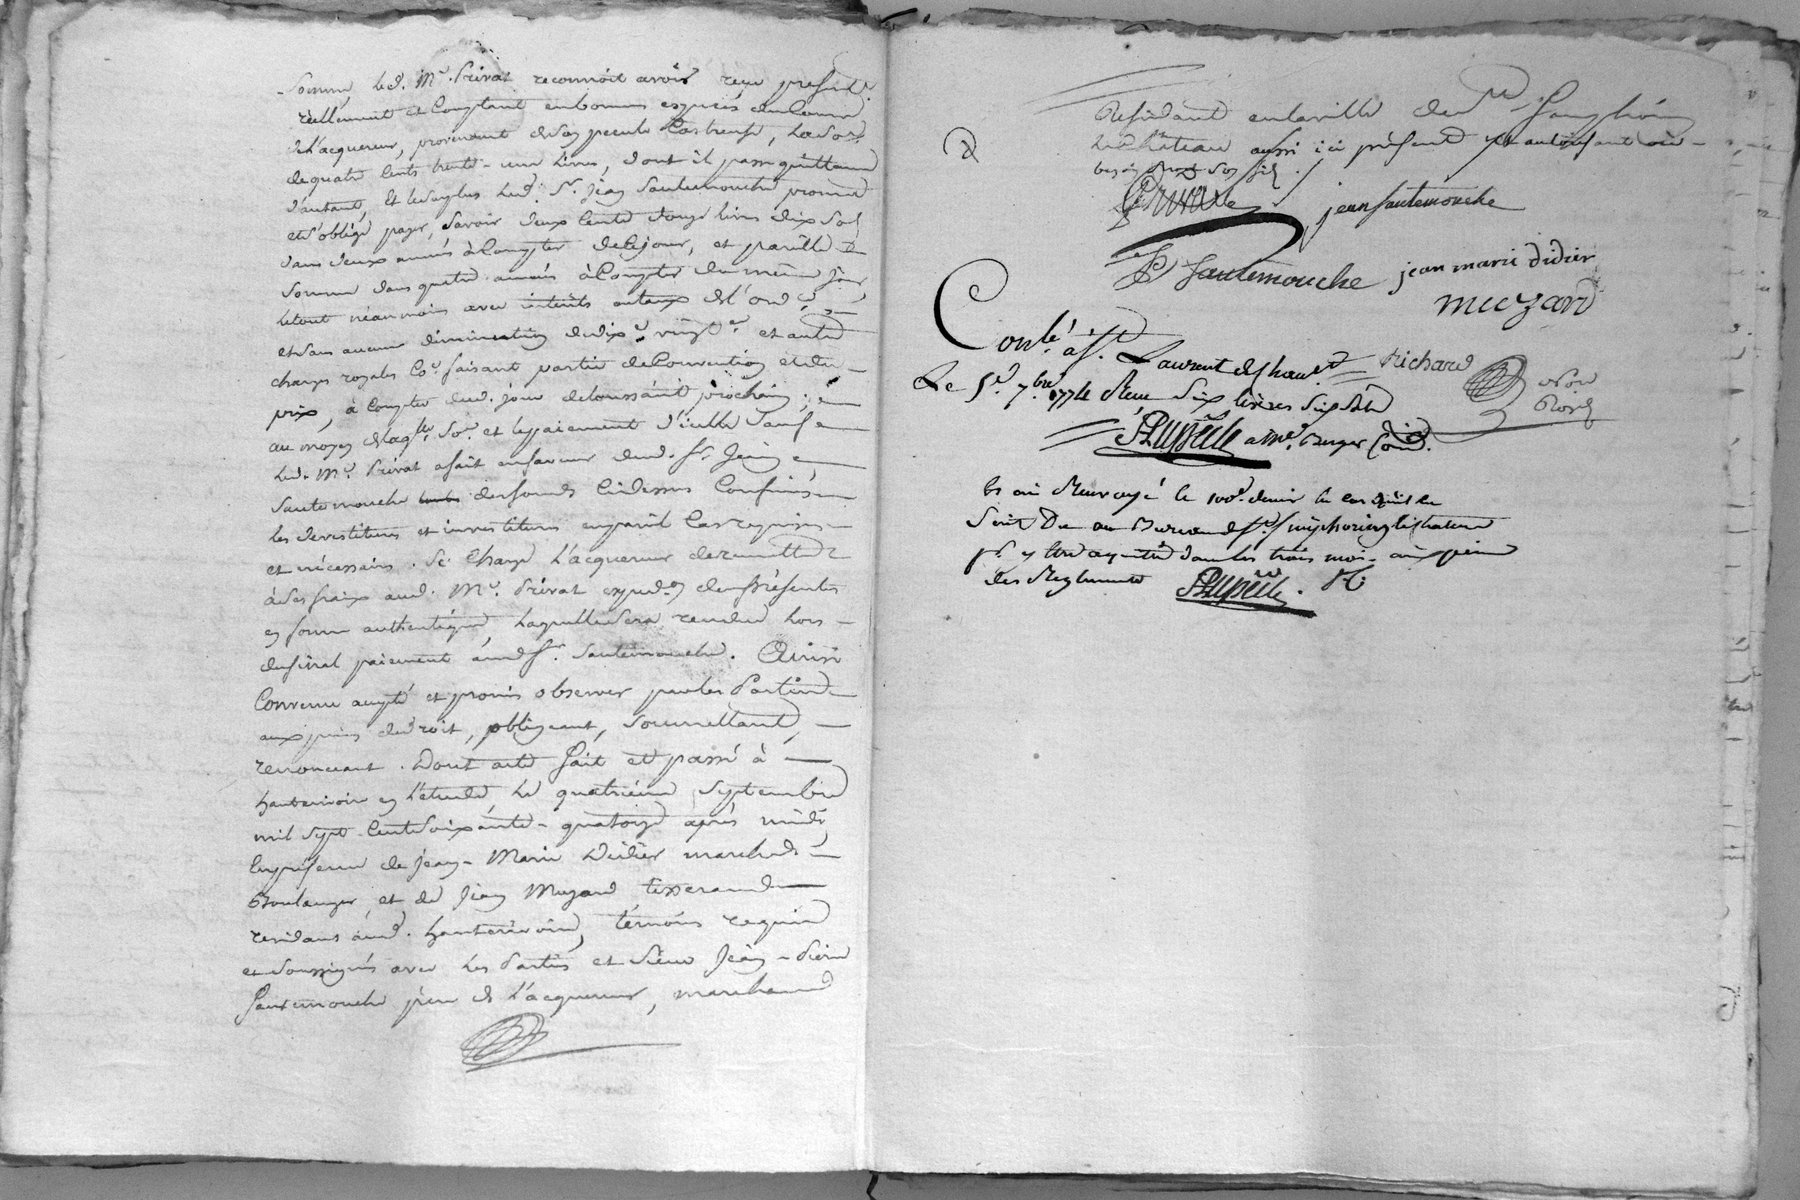 somme led. Me. Privat reconnoit avoir reçu présentt.
réellement et comptant en bonnes espèces
de l'acquereur, provenant de son pecule Castrense, la so.e
de quatre cents trente-une livres, dont il passe quittance
d'autant, et le surplus led. Sr. Jean Sautemouche promet
et s'oblige payer, savoir deux cents douze livres dix sols
dans deux années à compter de ce jour, et pareille
somme dans quatre années à compter du même jour,
le tout néanmoins avec intérêts au taux de l'ord.ce
et sans aucune diminution de dixe. vingte. et autres
charges royales faisant partie de convention et du
prix, à compter dud. jour de toussaint prochain;
au moyen de laq.lle so.e et le paiement d'icelle
led. Me. Privat a fait en faveur dud. Sr. Jean
Sautemouche des fonds ci dessus confinés
les devestitures et investitures en pareil cas requises
et nécessaires. Se charge l'acquereur de remettre
à ses fraix aud. Me. Privat exped.on des présentes
en forme authentique, laquelle sera rendue lors
du final paiement aud. Sr. Sautemouche. Ainsi
convenu accepté et promis observer par les parties
aux peines de droit, obligeant, soumettant,
renonceant. Dont acte fait et passé à
hauterivoire en l'étude, le quatrième septembre
mil sept cents soixante-quatorze après midi,
en présence de Jean-Marie Didier marchand
Boulanger, et de Jean Muzard tisserand
residans aud. hauterivoire, témoins requis
et soussignés avec les parties et sieur Jean-Pierre
Sautemouche père de l'acquereur, marchand
residant en la ville de St. Symphorien
le Château aussi ici présent et autorisant où
besoin son fils.
Privat
jean sautemouche
Sautemouche jean marie didier
muzard
Conlé. à St. Laurent de Chamt. Richard
Le 5e. 7bre 1774 Reçu six livres six s. Nore
Roial
à Me. Berger Cond.
et ai renvoyé le 100e. denier
être dû au Bureau de St. simphorien le chateau
pr. y être acquitté dans les trois mois aux peines
des Reglements